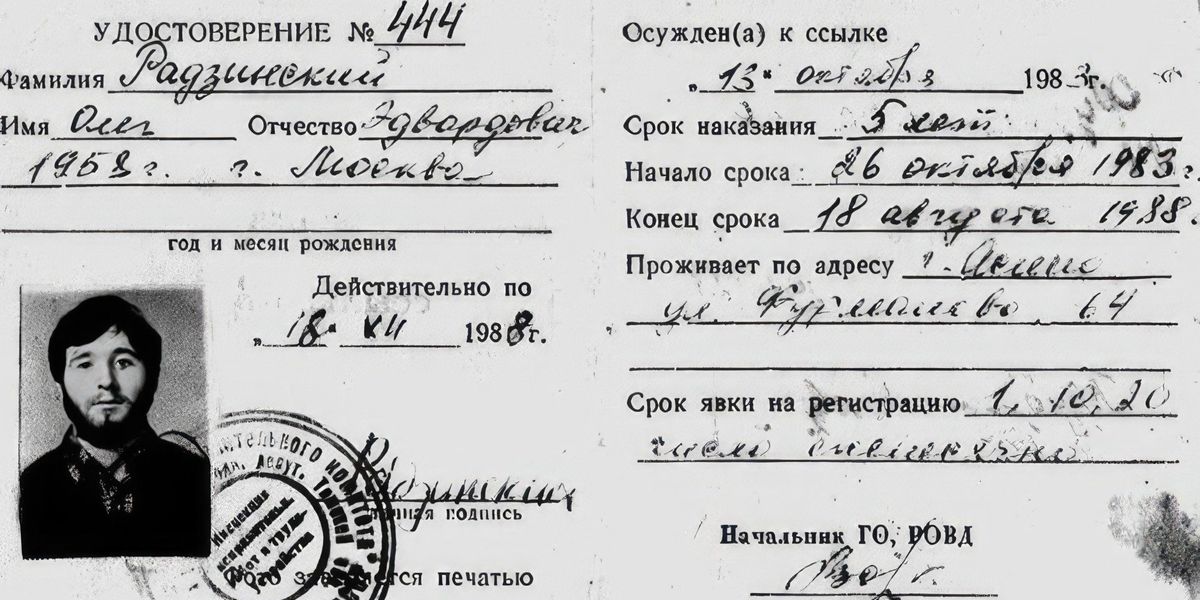 УДОСТОВЕРЕНИЕ № 444
Фамилия Радзинский
Имя Олег Отчество Эдвардович
1958 г. г. Москва
год и месяц рождения
Действительно по
„18" XII 1988г.
ительного комитета
деп. Томской
Инспекция исправительных работ и трудоустройства
Радзинский
личная подпись
печатью
Осужден(а) к ссылке
„13" октября 1983г.
Срок наказания 5 лет
Начало срока 26 октября 1983 г.
Конец срока 18 августа 1988.
Проживает по адресу г. Асино
ул. Фурманова 64
Срок явки на регистрацию 1, 10, 20
число ежемесячно
Начальник ГО, РОВД